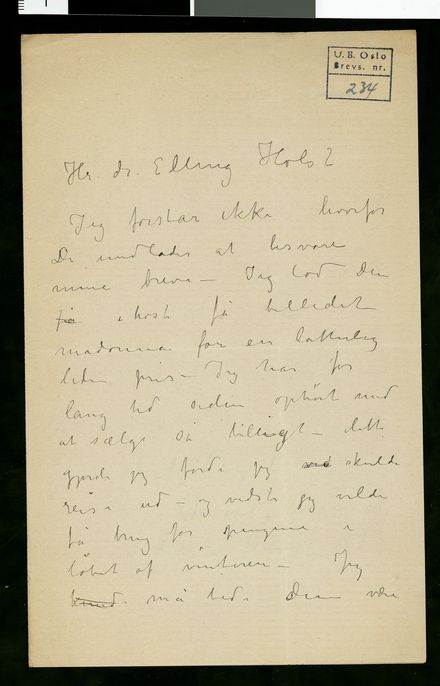 U. B. Oslo
Brevs. nr.
234
Hr. dr. Elling Holst
Jeg forstår ikke hvorfor
De undlader at besvare
mine breve – Jeg lod Dem
få i høst få billedet
madonna for en latterlig
liden pris – Jeg har for
lang tid siden ophört med
at sælge så billigt – dette
gjorde jeg fordi jeg skulde
reise ud – og vidste jeg vilde
få brug for pengene i
löbet af vinteren – Jeg
må bede Dem være